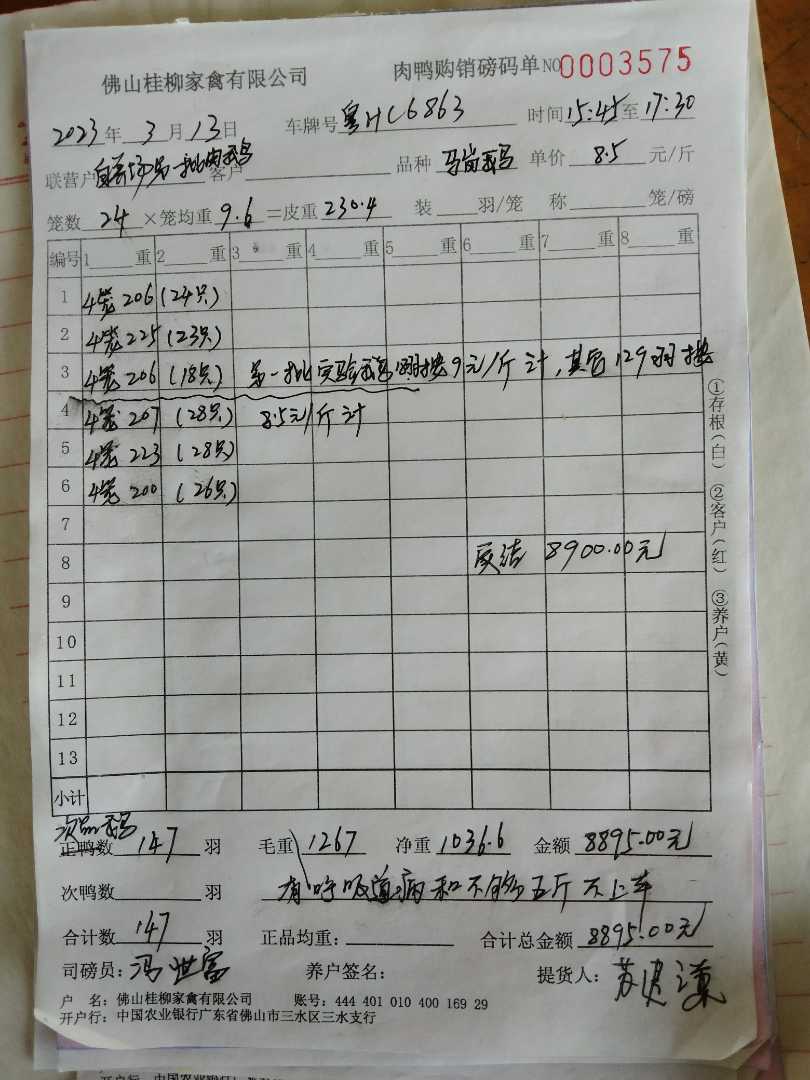 佛山桂柳家禽有限公司 肉鸭购销磅码单 NO 0003575
2023年 3月13日 车牌号 粤H C6863 时间 15:45至17:30
联营户 客户 品种 马岗鹅 单价 8.5 元/斤
笼数 24 ×笼均重 9.6 =皮重 230.4 装 羽/笼 称 笼/磅
编号 1 重 2 重 3 重 4 重 5 重 6 重 7 重 8 重
1 4笼 206 (24只)
2 4笼 225 (23只)
3 4笼 206 (18只) 第一批实验鹅 按9元/斤计,其它129羽按
4 4笼 207 (28只) 8.5元/斤计
5 4笼 223 (28只)
6 4笼 200 (26只)
7
8 实结 8900.00元
9
10
11
12
13
小计
次品鹅
正鸭数 147 羽 毛重 1267 净重 1036.6 金额 8895.00元
次鸭数 羽 有呼吸道病和不够五斤不上车
合计数 147 羽 正品均重: 合计总金额 8895.00元
司磅员: 冯世富 养户签名: 提货人:
户 名: 佛山桂柳家禽有限公司 账号: 444 401 010 400 169 29
开户行: 中国农业银行广东省佛山市三水区三水支行
①存根(白) ②客户(红) ③养户(黄)